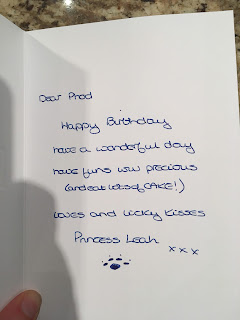 Dear Prod
Happy Birthday
have a wonderful day
have funs wiv precious
(and eat lots of CAKE!)
Loves and licky kisses
Princess Leah
x x x